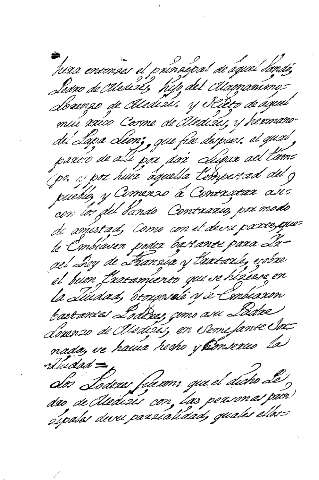 hera entonses el prinsipal de aquel Vando,
Pedro de Medizis, hijo del Magnanimo
Lorenzo de Medizis y Nieto de aquel
mui rico Cosme de Medizis, y hermano
del Papa Leon, que fue despues, el qual
paresio de alli por dar lugar al tiem-
po, y por huir aquella tempestad del
pueblo, y Comenzo à Contratar asi
con los del Vando Contrario, por modo
de amistad, como con el de su parte, que
le Embiasen poder bastante para
el Rey de Francia y tratar, sobre
el buen tratamiento que se hisiese en
la Ciudad, y Embiaron
bastantes Poderes, como asu Padre
Lorenzo de Medizis, en Semejante Jor-
nada, se havia hecho y Conservo la
Ciudad=
Los Poderes fueron que el dicho Pe-
dro de Medizis con las personas prin-
sipales de su parsialidad, quales ellos-